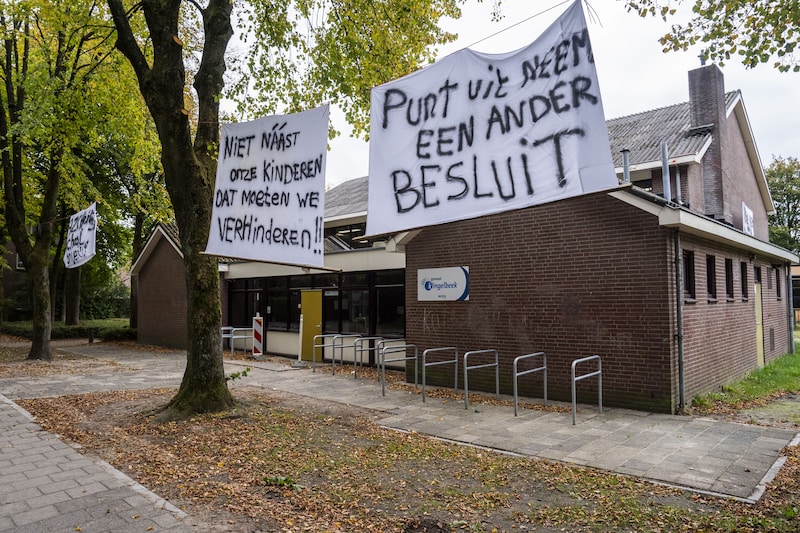 NiET NÁÁST
ONZE KiNDEREN
DAT MOETEN WE
VERHinDEREN!!
PUNT UiT NEEM
EEN ANDER
BESLUiT
ingelbeek